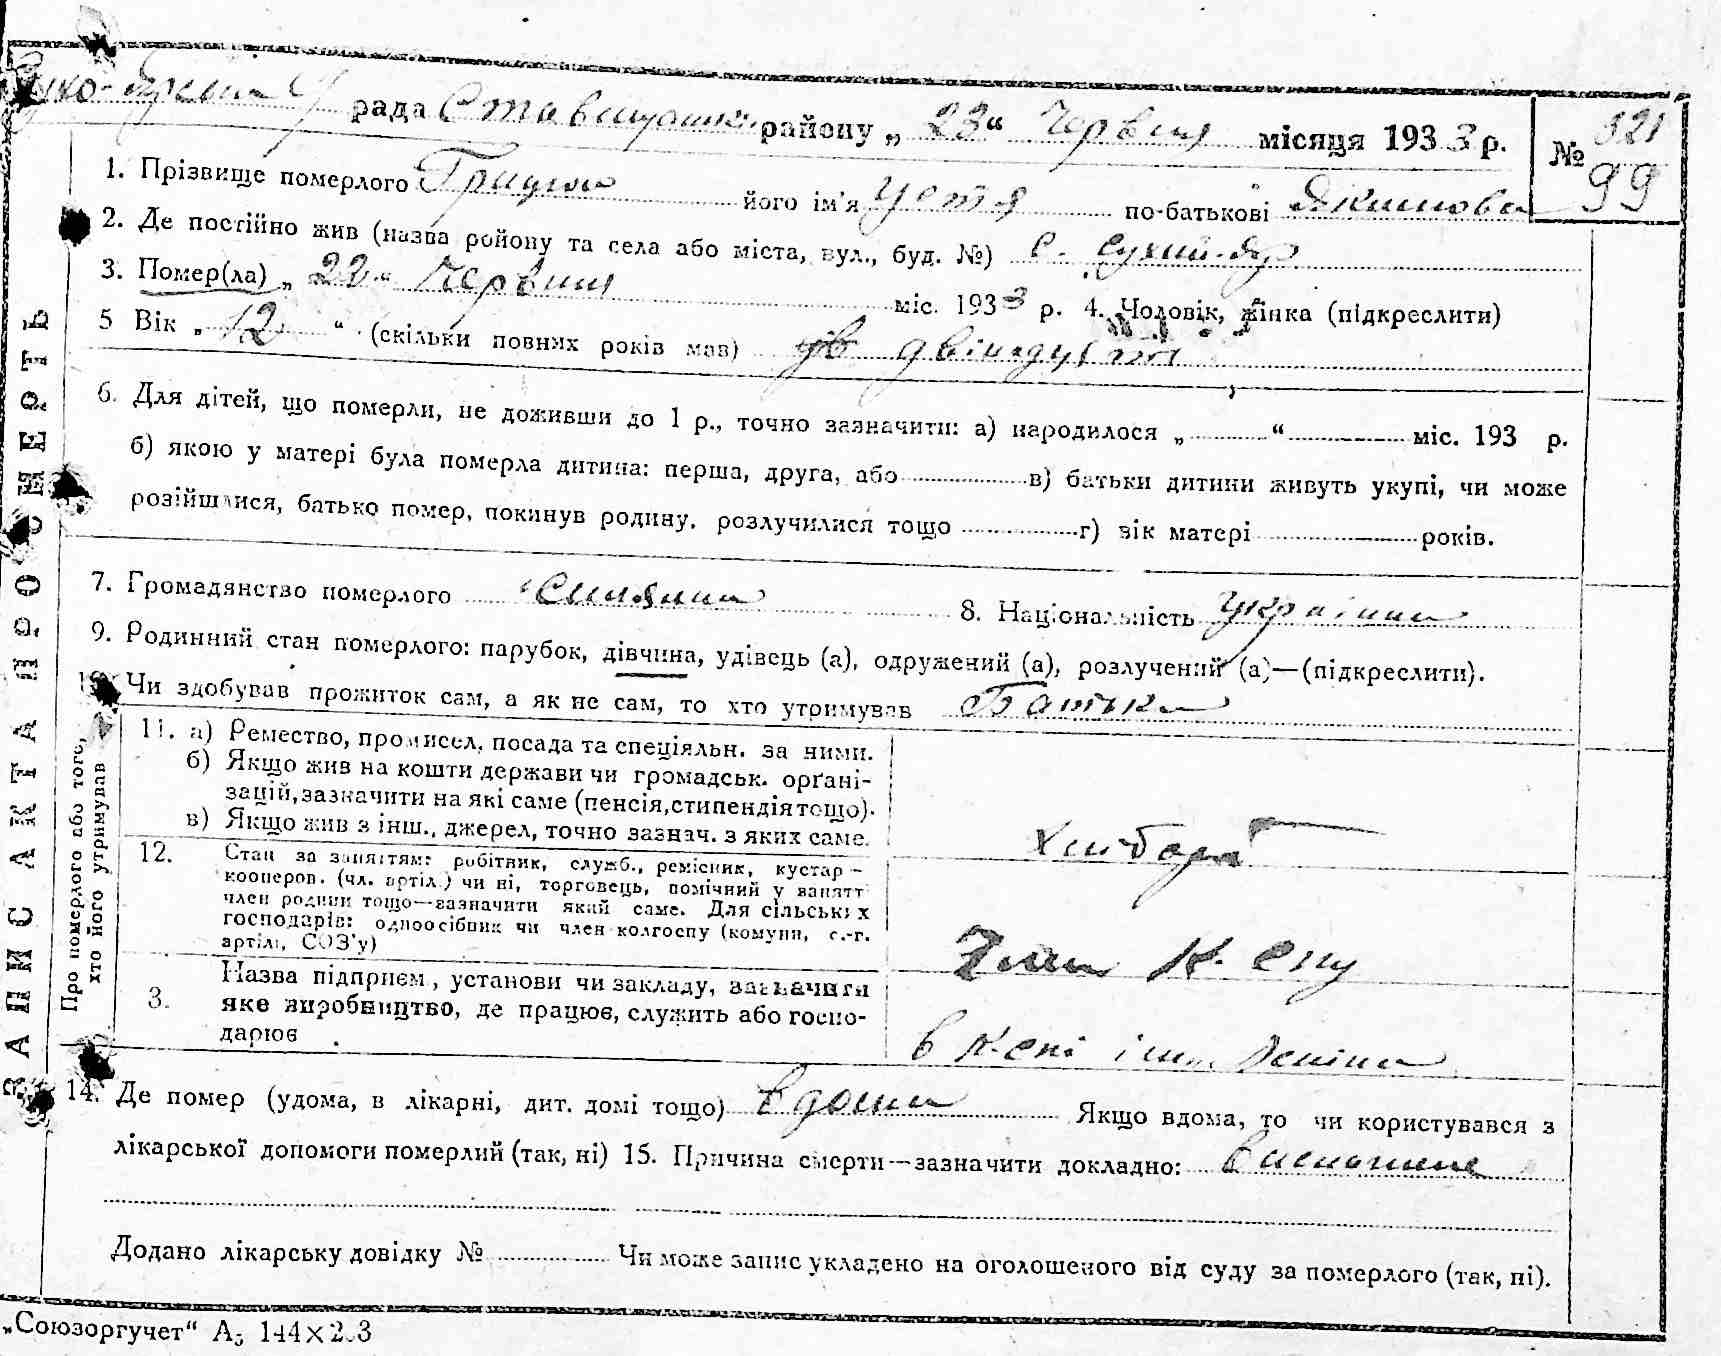 рада Ставищанськ. району „23“ Червня місяця 1933 р.
№ 321
99
1. Прізвище померлого Грицюк його ім'я Устя по-батькові Якимова
2. Де постійно жив (назва району та села або міста, вул., буд. №) с. Сухий-Яр
3. Помер(ла) „22“ Червня міс. 1933 р. 4. Чоловік, жінка (підкреслити)
5 Вік „12“ (скільки повних років мав) дванадцять
6. Для дітей, що померли, не доживши до 1 р., точно зазначити: а) народилося „ “ міс. 193 р.
б) якою у матері була померла дитина: перша, друга, або в) батьки дитини живуть укупі, чи може
розійшлися, батько помер, покинув родину, розлучилися тощо г) вік матері років.
7. Громадянство померлого 8. Національність Українка
9. Родинний стан померлого: парубок, дівчина, удівець (а), одружений (а), розлучений (а)—(підкреслити).
10. Чи здобував прожиток сам, а як не сам, то хто утримував Батько
ЗАПИС АКТА ПРО СМЕРТЬ
Про померлого або того, хто його утримував
11. а) Ремество, промисел, посада та спеціяльн. за ними.
б) Якщо жив на кошти держави чи громадськ. орґані-
зацій, зазначити на які саме (пенсія, стипендія тощо).
в) Якщо жив з інш., джерел, точно зазнач. з яких саме.
Хлібороб
12. Стан за заняттям: робітник, служб., ремісник, кустар –
кооперов. (чл. артіл.) чи ні, торговець, помічний у занятт
член родини тощо—зазначити який саме. Для сільських
господарів: одноосібник чи член колгоспу (комуни, с.-г.
артілі, СОЗ'у)
Член К-спу
3. Назва підприєм, установи чи закладу, зазначити
яке виробництво, де працює, служить або госпо-
дарює
в К-спі імен. Леніна
14. Де помер (удома, в лікарні, дит. домі тощо) вдома Якщо вдома, то чи користувався з
лікарської допомоги померлий (так, ні) 15. Причина смерти—зазначити докладно:
Додано лікарську довідку № Чи може запис укладено на оголошеного від суду за померлого (так, ні).
„Союзоргучет“ А5 144×203